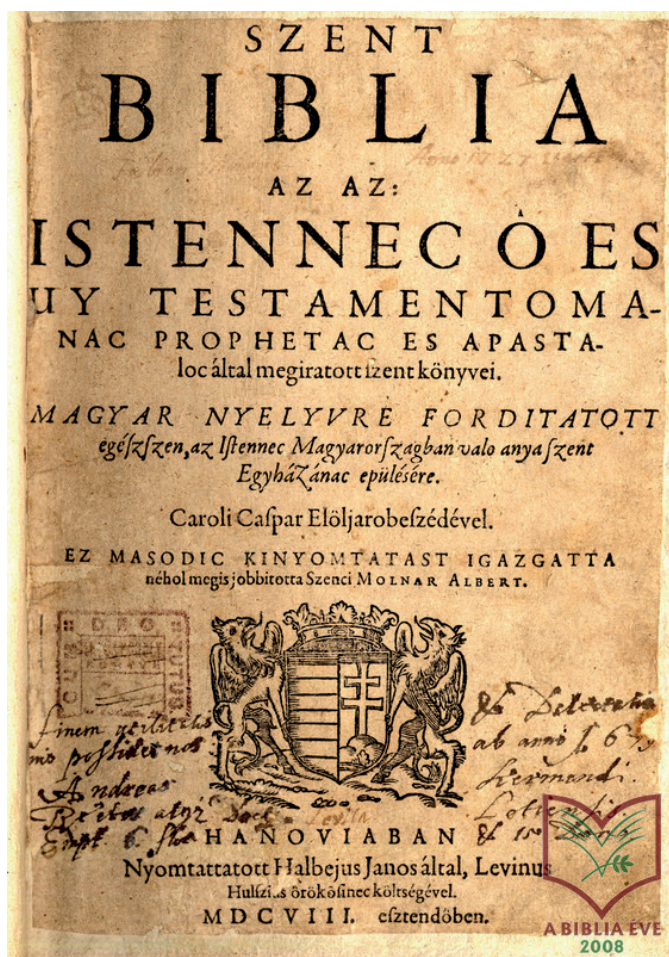 SZENT
BIBLIA
AZ AZ:
ISTENNEC Ó ES
UY TESTAMENTOMA-
NAC PROPHETAC ES APASTA-
loc által megiratott ſzent könyvei.
MAGYAR NYELYVRE FORDITATOTT
egéſzſzen, az Iſtennec Magyarorſzagban valo anya ſzent
Egyházánac epüléſére.
Caroli Caſpar Elöljarobeſzédével.
EZ MASODIC KINYOMTATAST IGAZGATTA
néhol megis jobbitotta Szenci MOLNAR ALBERT.
Andreas
ab anno
HANOVIABAN
Nyomtattatott Halbejus Janos által, Levinus
örökösinec költségével.
MDCVIII. eſztendöben.
A BIBLIA ÉVE
2008